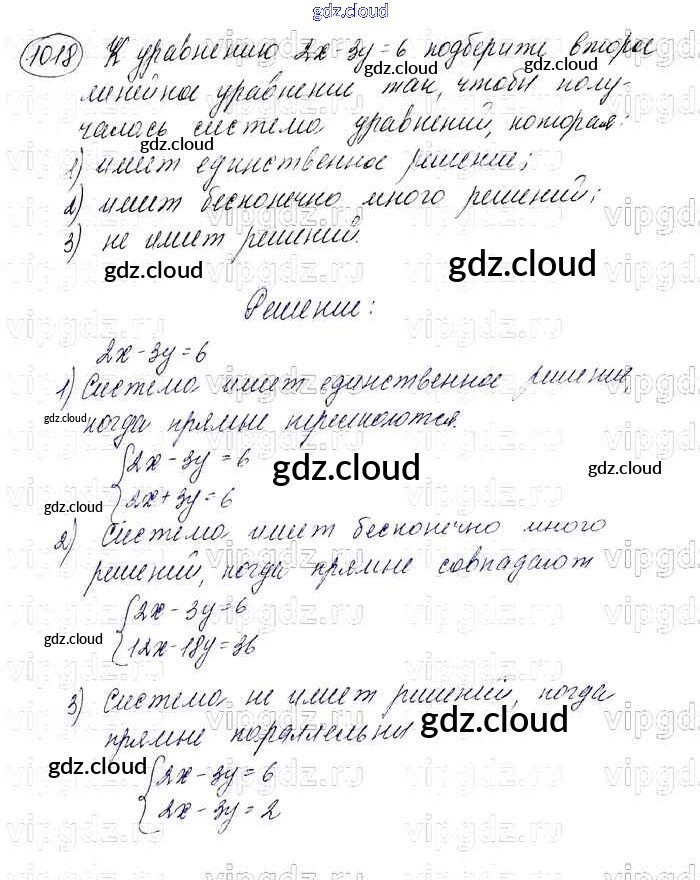 gdz.cloud
1018 К уравнению 2x-3y=6 подберите второе
линейное уравнение так, чтобы полу-
чалась система уравнений, которая:
gdz.cloud
1) имеет единственное решение;
2) имеет бесконечно много решений;
3) не имеет решений.
gdz.cloud gdz.cloud
Решение:
2x-3y=6
1) Система имеет единственное решение,
gdz.cloud когда прямые пересекаются.
{2x-3y=6
2x+3y=6
gdz.cloud gdz.cloud
gdz.cloud
2) Система имеет бесконечно много
решений, когда прямые совпадают
{2x-3y=6
12x-18y=36
gdz.cloud gdz.cloud
3) Система не имеет решений, когда
прямые параллельны
gdz.cloud
gdz.cloud {2x-3y=6
2x-3y=2
vipgdz.ru